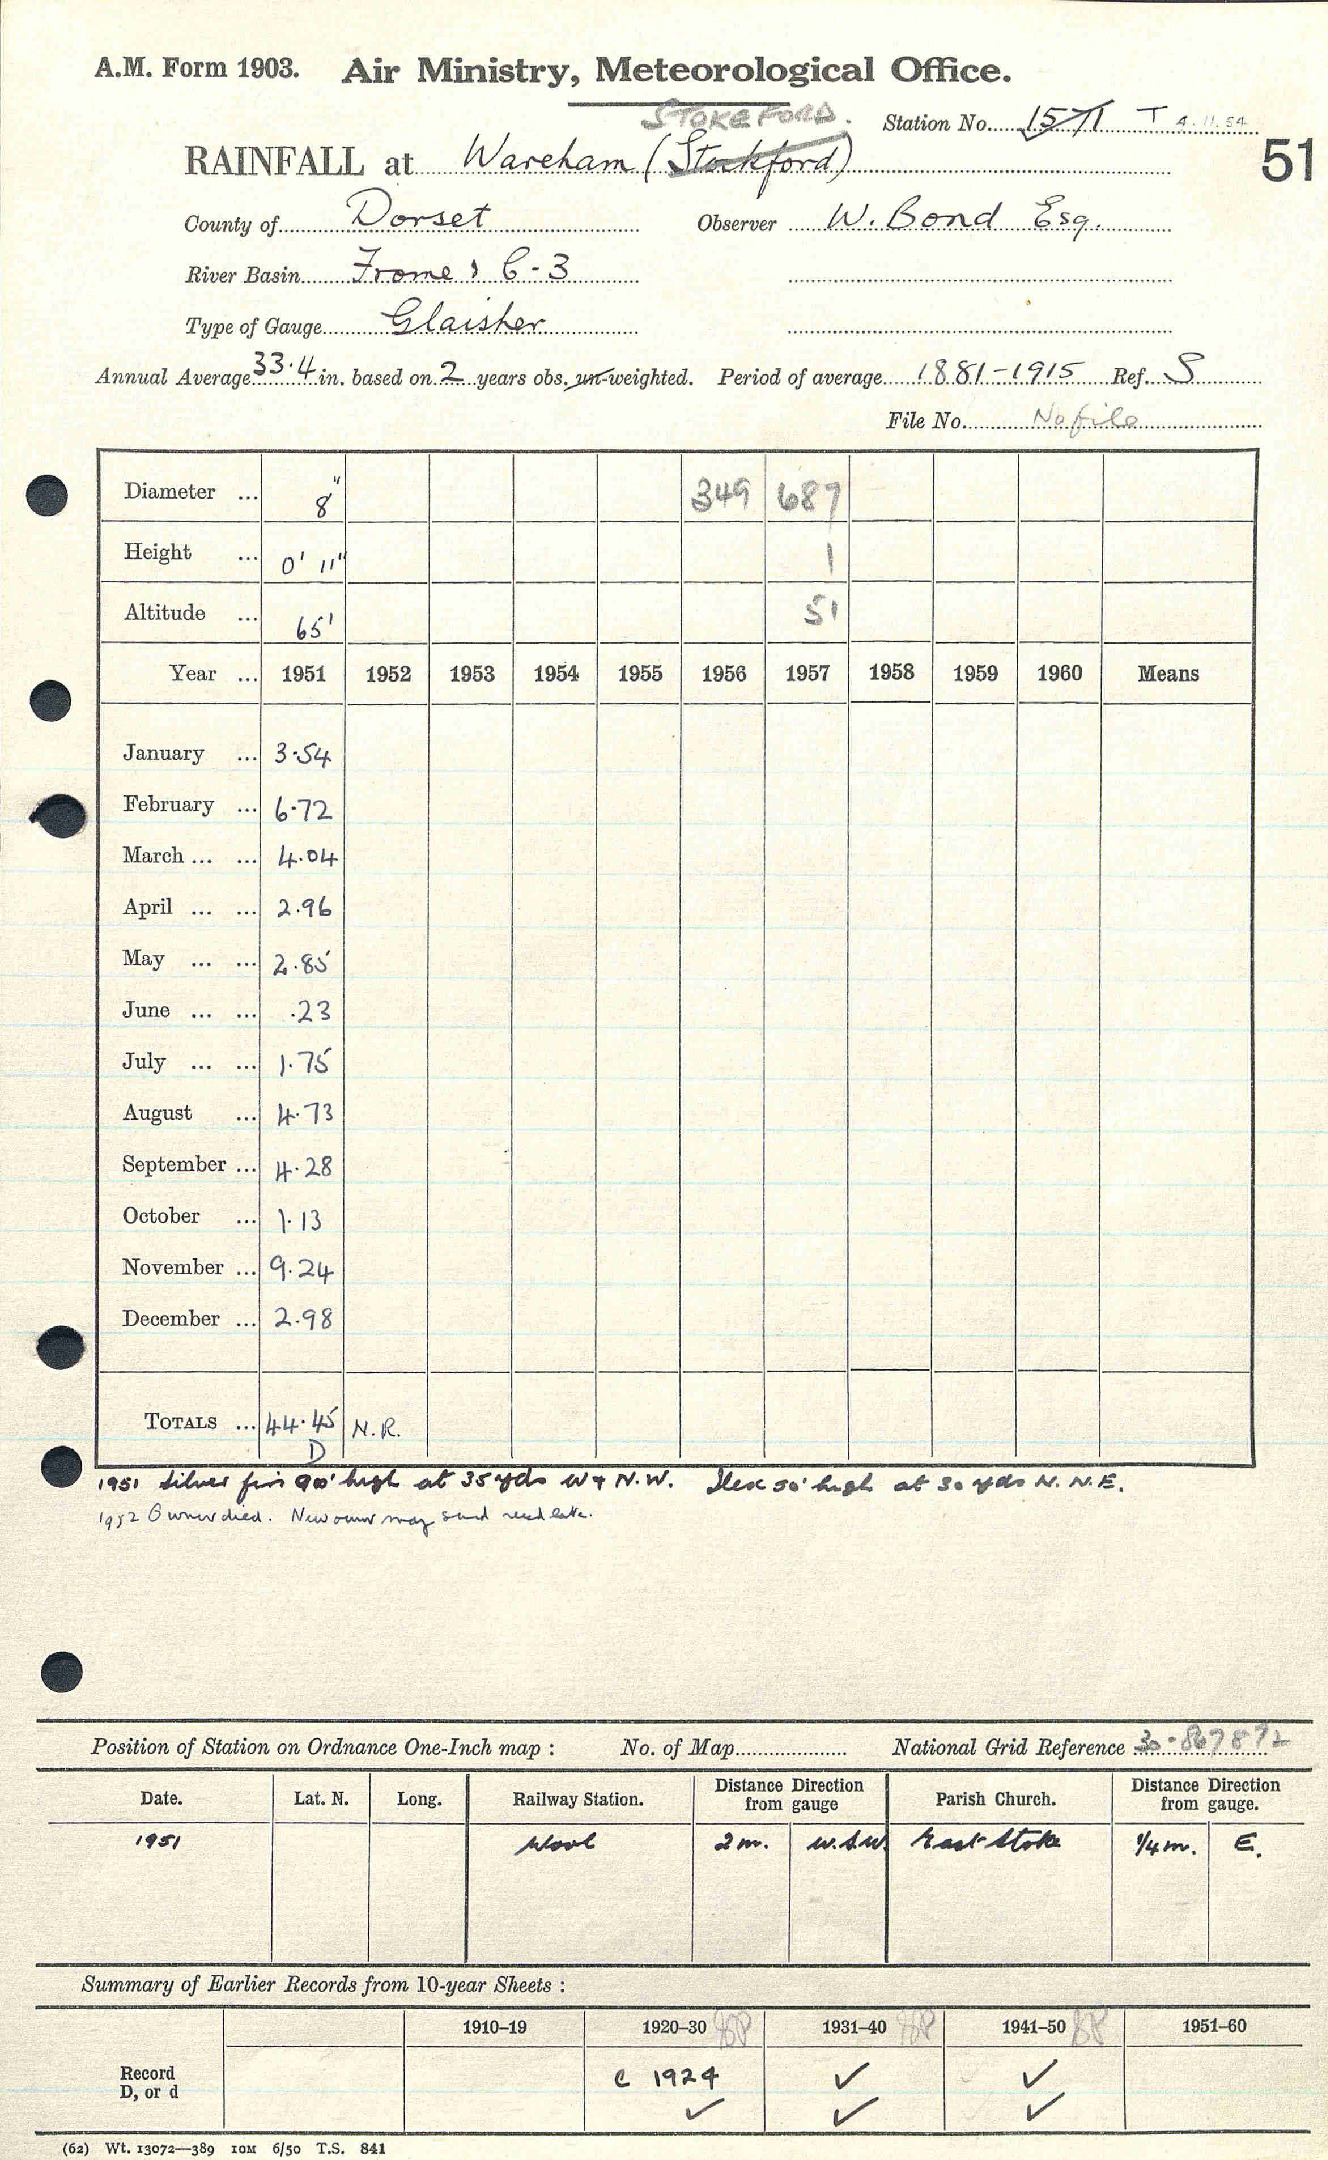 A.M. Form 1903. Air Ministry, Meteorological Office.
STOKEFORD.
Station No. 1571 T 4.11.54
RAINFALL at Wareham (Stockford)
51
County of Dorset Observer W. Bond Esq.
River Basin Frome, C-3
Type of Gauge Glaisher
Annual Average 33.4 in. based on 2 years obs. un-weighted. Period of average 1881-1915 Ref. S
File No. No file
Diameter ... 8" 349 687
Height ... 0' 11" 1
Altitude ... 65' 51
Year ... 1951 1952 1953 1954 1955 1956 1957 1958 1959 1960 Means
January ... 3.54
February ... 6.72
March ... ... 4.04
April ... ... 2.96
May ... ... 2.85
June ... ... .23
July ... ... 1.75
August ... 4.73
September ... 4.28
October ... 1.13
November ... 9.24
December ... 2.98
TOTALS ... 44.45 N.R.
D
1951 Silver firs 90' high at 35 yds W & N.W. Ilex 50' high at 30 yds N.N.E.
1952 Owner died. New owner may send later.
Position of Station on Ordnance One-Inch map : No. of Map National Grid Reference 30-867872
Date. Lat. N. Long. Railway Station. Distance Direction from gauge Parish Church. Distance Direction from gauge.
1951 Wool 2 m. W.S.W. East Stoke 1/4 m. E.
Summary of Earlier Records from 10-year Sheets :
1910–19 1920–30 1931–40 1941–50 1951–60
Record c 1924 ✓ ✓
D, or d ✓ ✓ ✓
(62) Wt. 13072—389 10M 6/50 T.S. 841